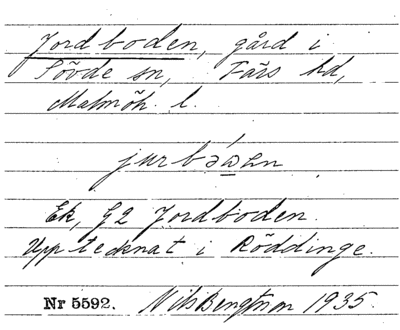 Jordboden, gård i
Sövde sn, Färs hd,
Malmöh. l.
Ek, G2 Jordboden.
Upptecknat i Röddinge.
Nr 5592. Nils Bengtsson 1935.